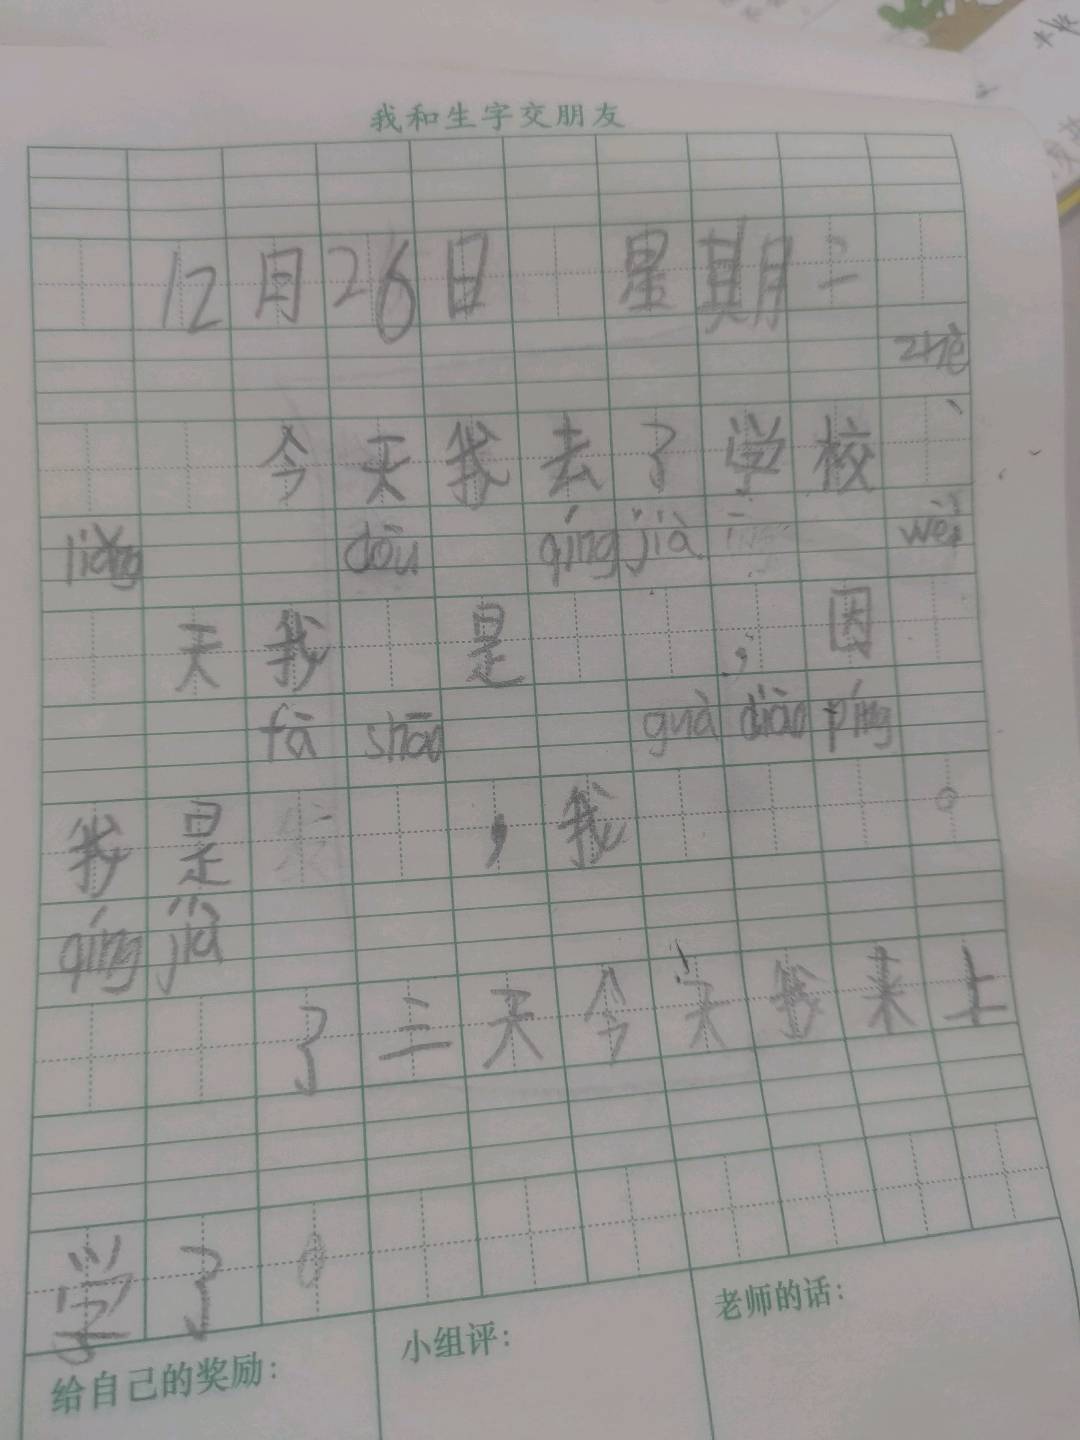 我和生字交朋友
12月26日 星期二
zhè
今天我去了学校、
liǎng dōu qíng jià wèi
天我 是 ，因
fā shāo guà diào píng
我是 ，我 。
qíng jià
了三天今天我来上
学了。
给自己的奖励： 小组评： 老师的话：